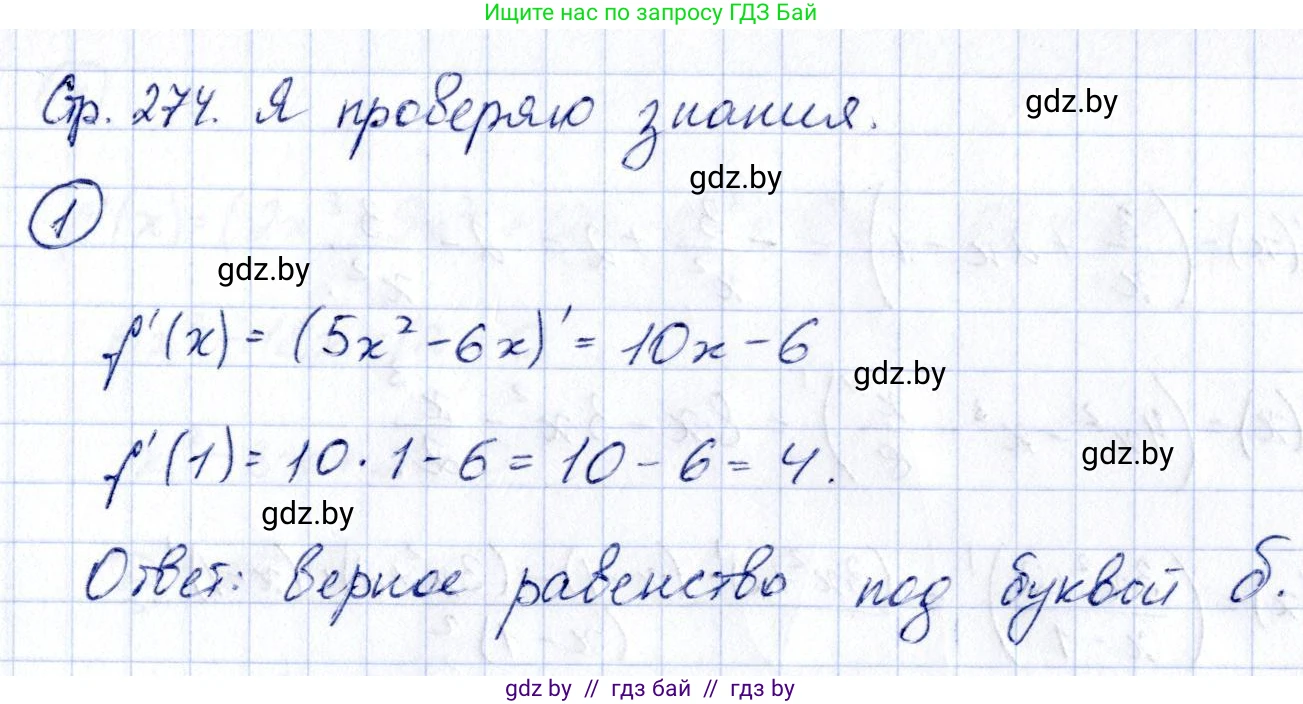 Ищите нас по запросу ГДЗ Бай
Стр. 274. Я проверяю знания.
gdz.by
gdz.by
1
gdz.by
f'(x) = (5x² - 6x)' = 10x - 6
gdz.by
f'(1) = 10 · 1 - 6 = 10 - 6 = 4.
gdz.by
gdz.by
Ответ: верное равенство под буквой б.
gdz.by // гдз бай // гдз by